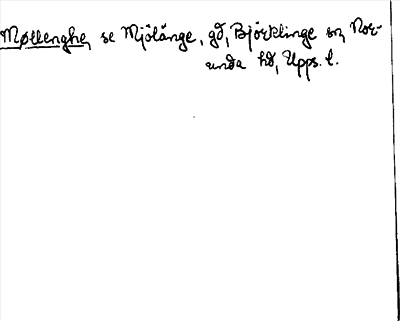 Møllenghe, se Mjölänge, gd, Björklinge sn, Nor-
unda hd, Upps. l.